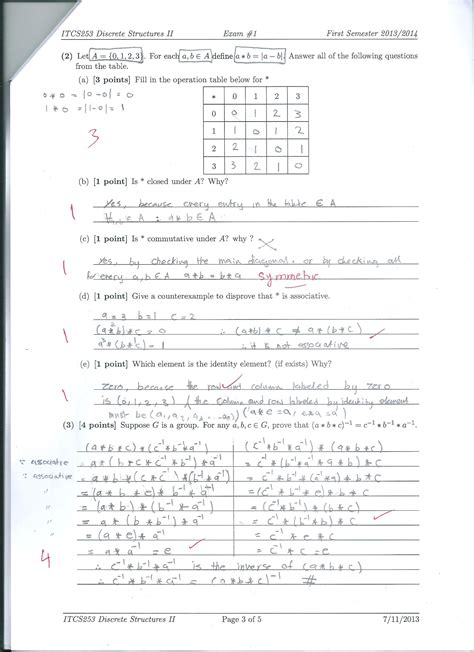 ITCS253 Discrete Structures II Exam #1 First Semester 2013/2014
(2) Let A = {0, 1, 2, 3}. For each a, b ∈ A define a * b = |a − b|. Answer all of the following questions
from the table.
(a) [3 points] Fill in the operation table below for *
0 * 0 = |0-0| = 0
1 * 0 = |1-0| = 1
3
* 0 1 2 3
0 0 1 2 3
1 1 0 1 2
2 2 1 0 1
3 3 2 1 0
(b) [1 point] Is * closed under A? Why?
1
Yes, because every entry in the table ∈ A
∈ A : a*b ∈ A
(c) [1 point] Is * commutative under A? why ?
1
Yes, by checking the main diagonal. or by checking all
every a,b ∈ A a*b = b*a Symmetric
(d) [1 point] Give a counterexample to disprove that * is associative.
1
a=3 b=1 c=2
(a*b)*c = 0 ∴ (a*b)*c ≠ a*(b*c)
a*(b*c) = ∴ it is not associative
(e) [1 point] Which element is the identity element? (if exists) Why?
1
zero, because the row and column labeled by zero
is (0,1,2,3) (the column and row labeled by identity element
must be (a₁,a₂, ...a₁)) (a*e=a, e*a=a)
(3) [4 points] Suppose G is a group. For any a, b, c ∈ G, prove that (a * b * c)⁻¹ = c⁻¹ * b⁻¹ * a⁻¹.
(a*b*c)*(c⁻¹*b⁻¹*a⁻¹) (c⁻¹*b⁻¹*a⁻¹)*(a*b*c)
∵ associative = a*(b*c*c⁻¹*b⁻¹)*a⁻¹ = c⁻¹*(b⁻¹*a⁻¹*a*b)*c
∵ associative = a*b*(c*c⁻¹)*b⁻¹*a⁻¹ = c⁻¹*b⁻¹*(a⁻¹*a)*b*c
= (a*b*e)*b⁻¹*a⁻¹ = c⁻¹*(b⁻¹*e)*b*c
= (a*b)*(b⁻¹*a⁻¹) = c⁻¹*(b⁻¹*b)*c
= a*(b*b⁻¹)*a⁻¹ = c⁻¹*(b⁻¹*b)*c
= (a*e)*a⁻¹ = c⁻¹*e*c
4 = a*a⁻¹ = e = c⁻¹*c = e
∴ c⁻¹*b⁻¹*a⁻¹ is the inverse of (a*b*c)
∴ c⁻¹*b⁻¹*a⁻¹ = (a*b*c)⁻¹ #
ITCS253 Discrete Structures II Page 3 of 5 7/11/2013